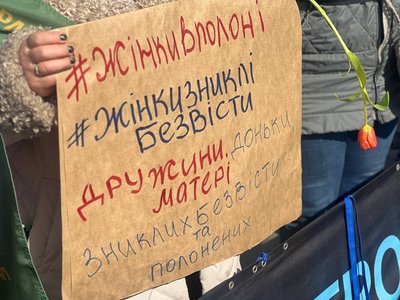 #Жінкивполоні
#Жінкизниклі
безвісти
дружини, доньки
матері
зниклих безвісти
та
полонених